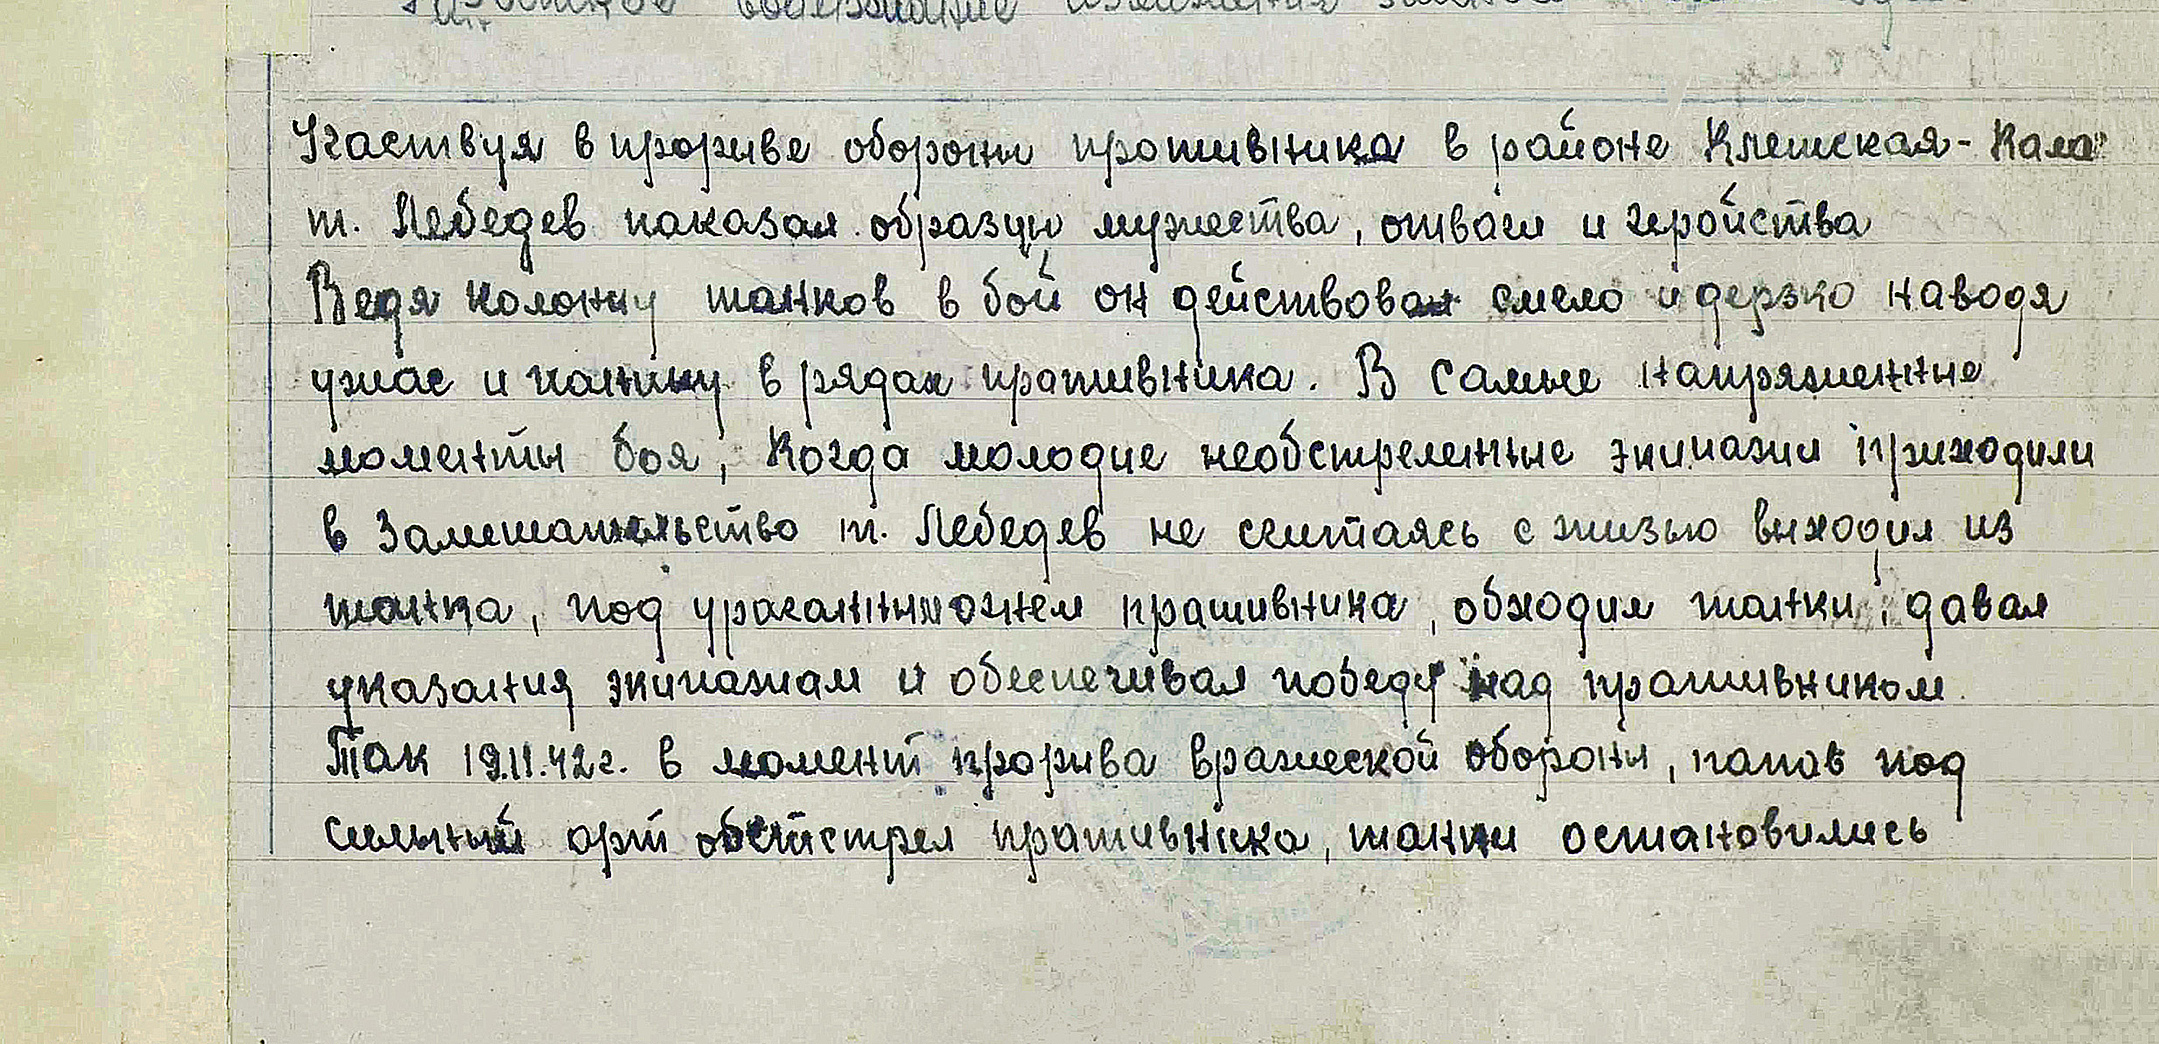 Участвуя в прорыве обороны противника в районе Клетская - Кала
т. Лебедев показал образцы мужества, отваги и геройства
Ведя колонну танков в бой он действовал смело и дерзко наводя
ужас и панику в рядах противника. В самые напряженные
моменты боя, когда молодые необстреленные экипажи приходили
в замешательство т. Лебедев не считаясь с жизью выходил из
танка, под ураганным огнем противника, обходил танки, давал
указания экипажам и обеспечивал победу над противником.
Так 19.11.42г. в момент прорыва вражеской обороны, попав под
сильный арт обстрел противника, танки остановились